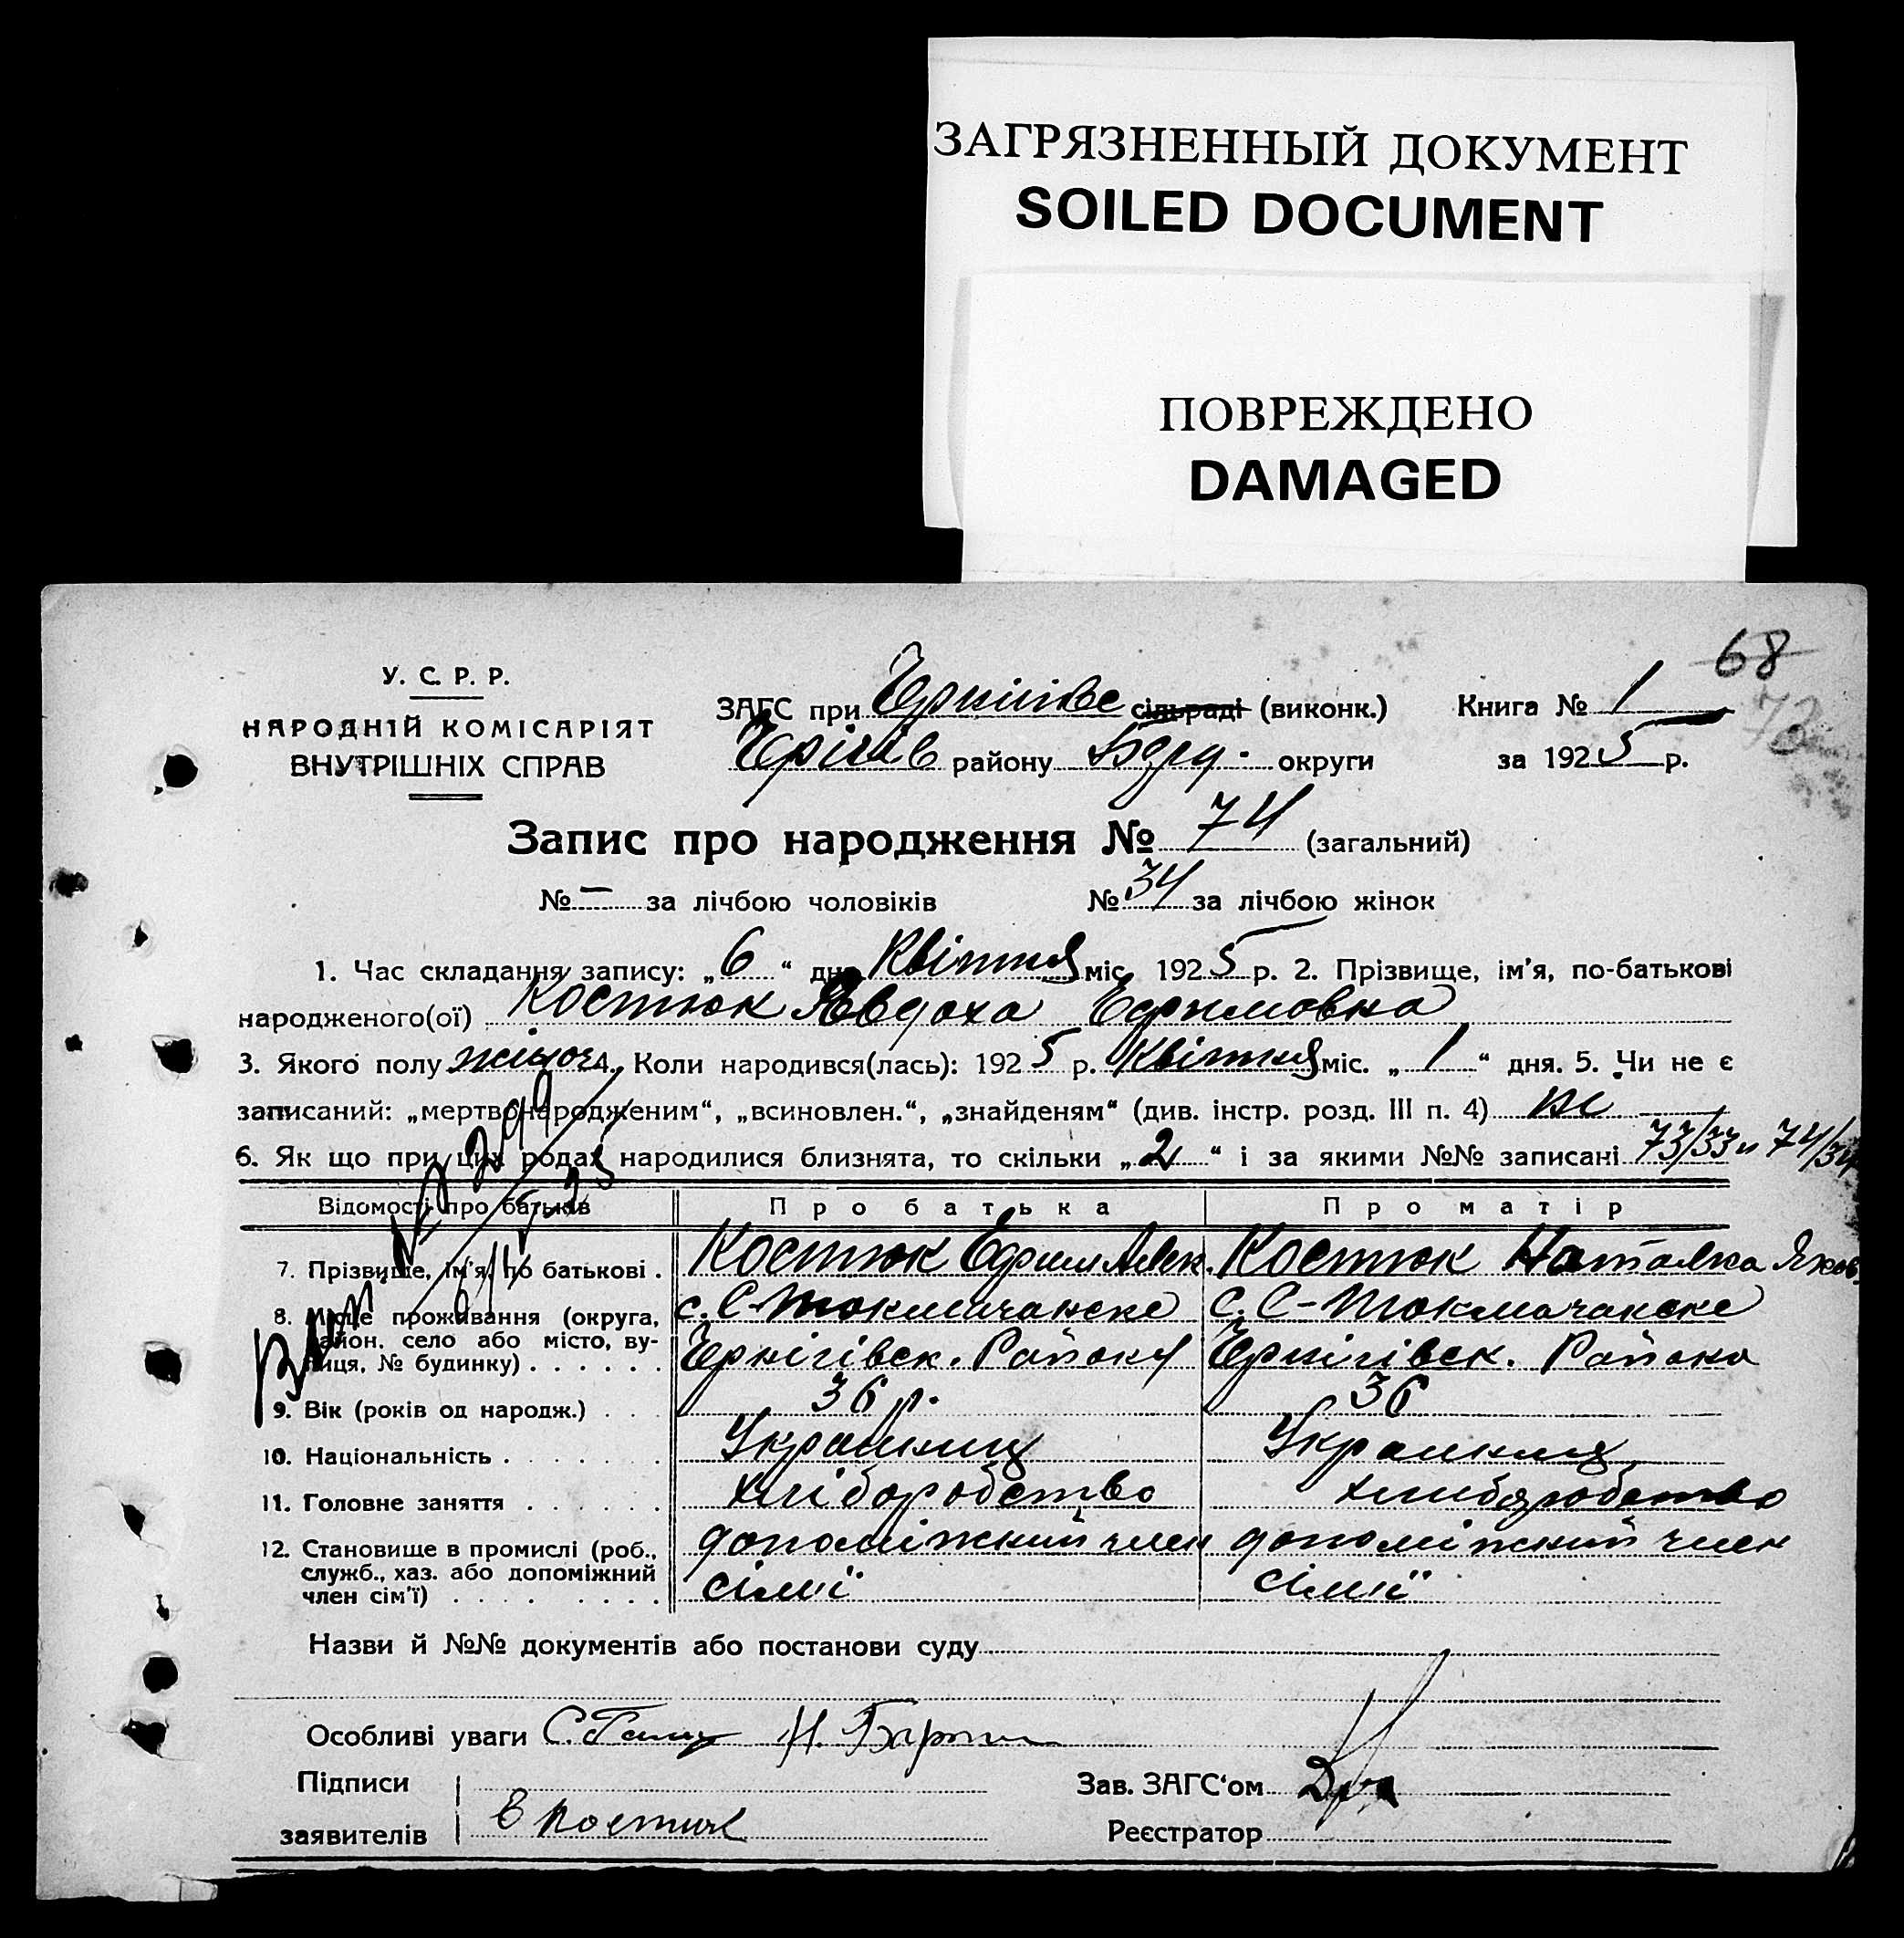 ЗАГРЯЗНЕННЫЙ ДОКУМЕНТ
SOILED DOCUMENT
ПОВРЕЖДЕНО
DAMAGED
68
73
У. С. Р. Р.
НАРОДНІЙ КОМІСАРІЯТ
ВНУТРІШНІХ СПРАВ
ЗАГС при сільраді (виконк.) Книга № 1
району округи за 1925 р.
Запис про народження № 74 (загальний)
№ — за лічбою чоловіків № 34 за лічбою жінок
1. Час складання запису: „6“ дня Квітня міс. 1925 р. 2. Прізвище, ім'я, по-батькові
народженого(ої) Костюк Явдоха Ефимовна
3. Якого полу жіноч. 4. Коли народився(лась): 1925 р. Квітня міс. „1“ дня. 5. Чи не є
записаний: „мертвонародженим“, „всиновлен.“, „знайденям“ (див. інстр. розд. III п. 4) ні
6. Як що при цих родах народилися близнята, то скільки „2“ і за якими №№ записані 73/33 и 74/34
Відомості про батьків Про батька Про матір
7. Прізвище, ім'я, по батькові . Костюк Ефим Алек. Костюк Наталка Яков.
8. Місце проживання (округа, с. С-Токмачанске с. С-Токмачанске
район, село або місто, ву-
лиця, № будинку) . . . . . . Чернігівск. Району Чернігівск. Района
9. Вік (років од народж.) . . . 36 р. 36
10. Національність . . . . . . . Украиниц Украинця
11. Головне заняття . . . . . . хліборобство хлиборобство
12. Становище в промислі (роб., допоміжний член допоміжний член
служб., хаз. або допоміжний
член сім'ї) . . . . . . . . сімії сімії
Назви й №№ документів або постанови суду
Особливі уваги
Підписи Зав. ЗАГС'ом
заявителів Е Костюк Реєстратор